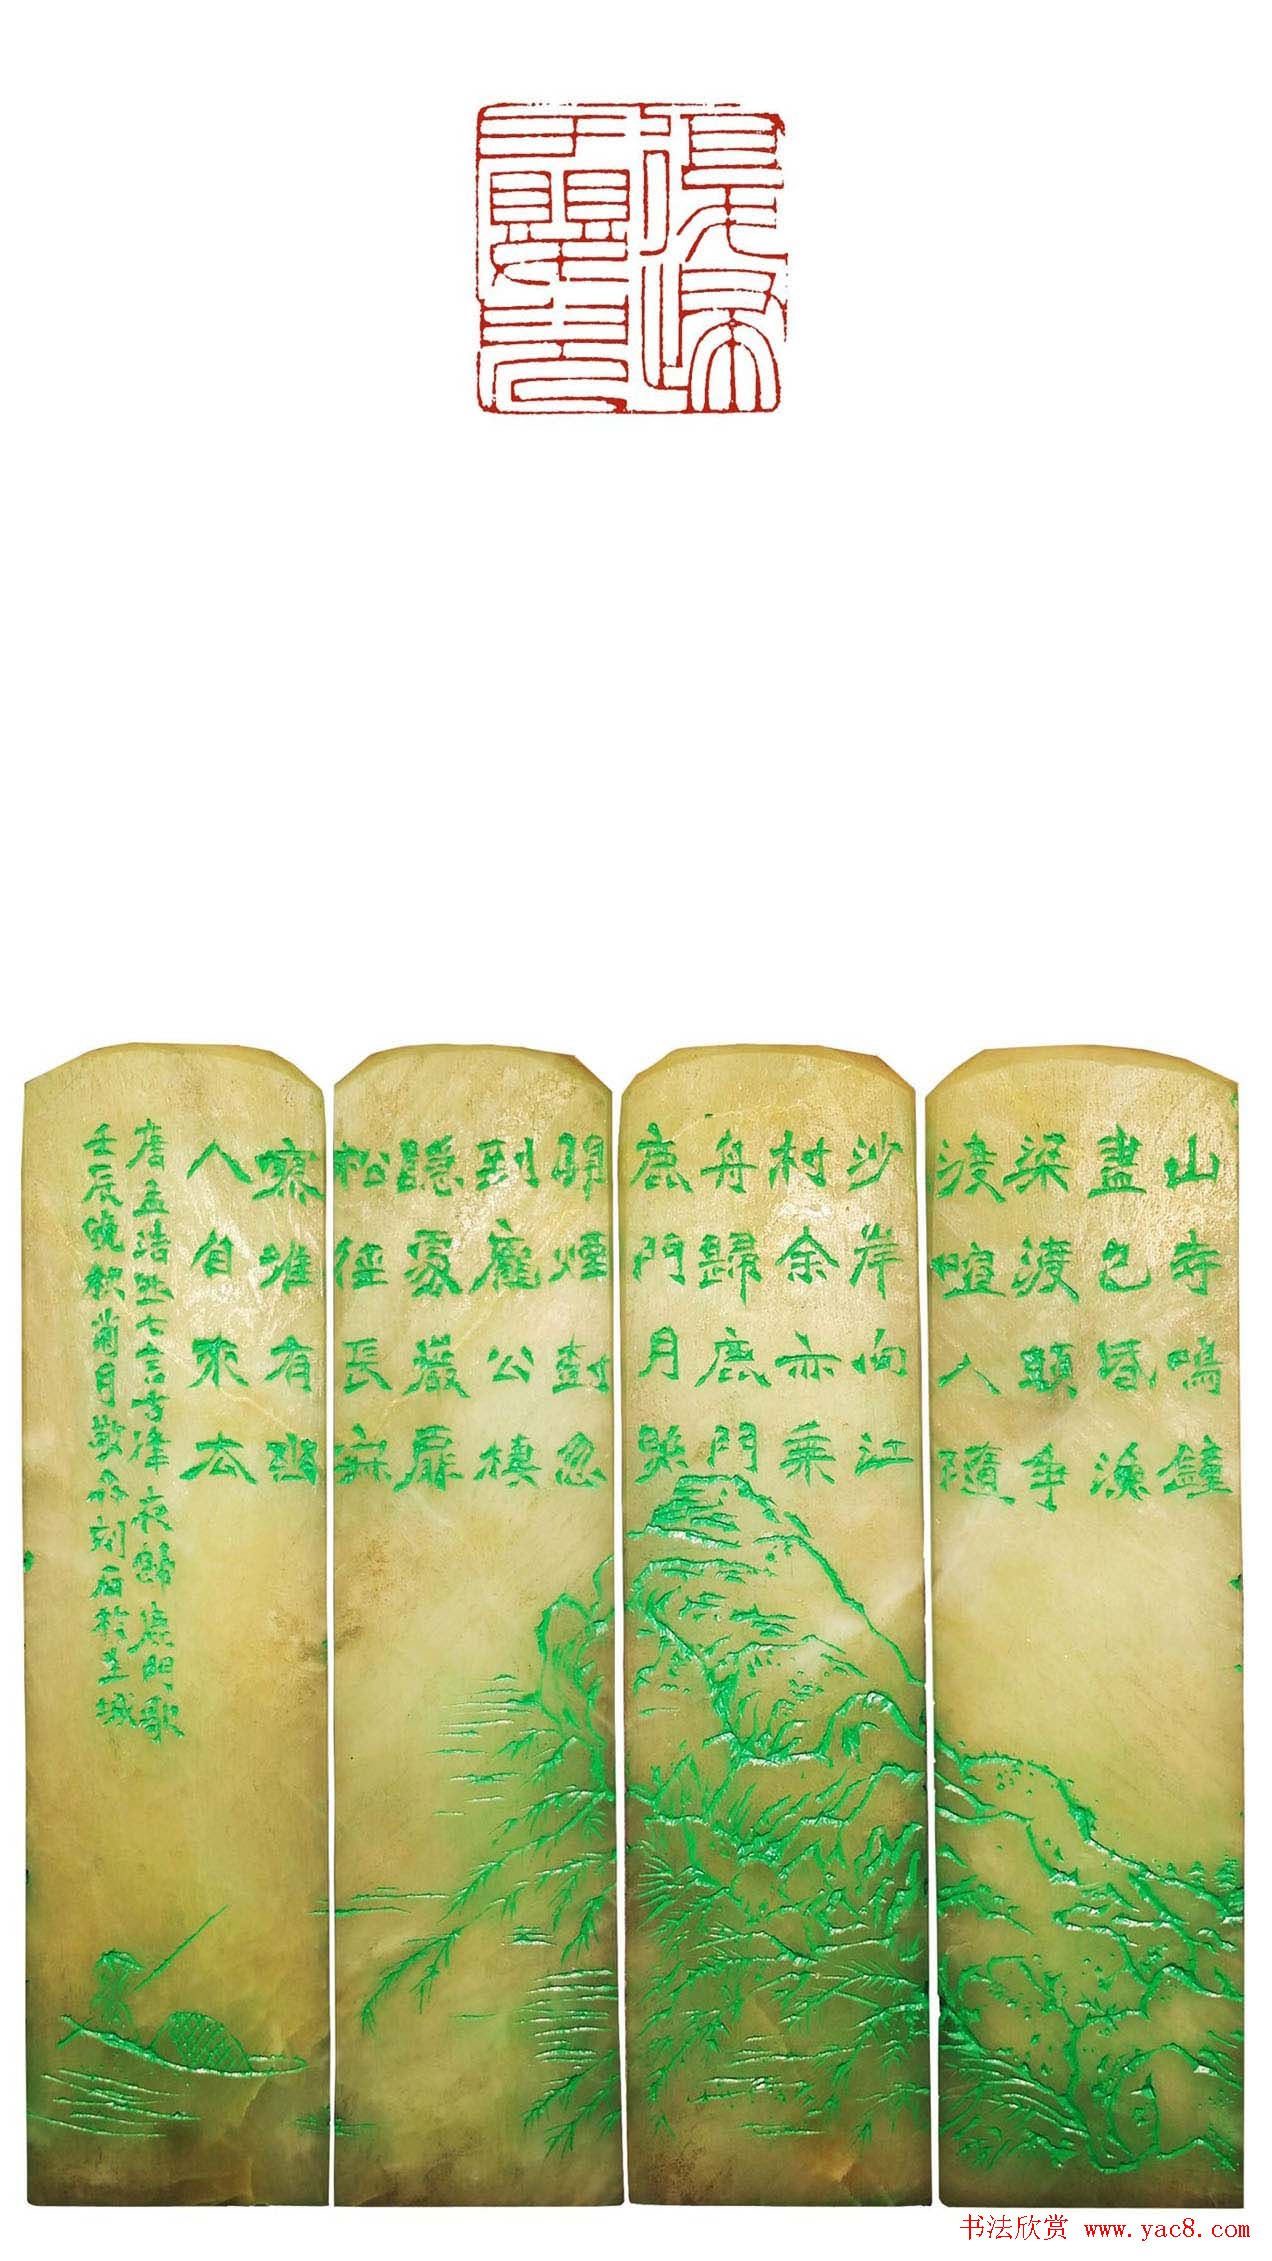 山寺鳴鐘
盡已昏漁
梁渡頭爭
渡喧人隨
沙岸向江
村余亦乘
舟歸鹿門
鹿門月照
開煙尌忽
到龐公棲
隱處巖扉
松徑長寂
寥惟有幽
人自來去
唐孟浩然七言古律 夜歸鹿門歌
壬辰晚秋菊月敬刻石於羊城
书法欣赏 www.yac8.com